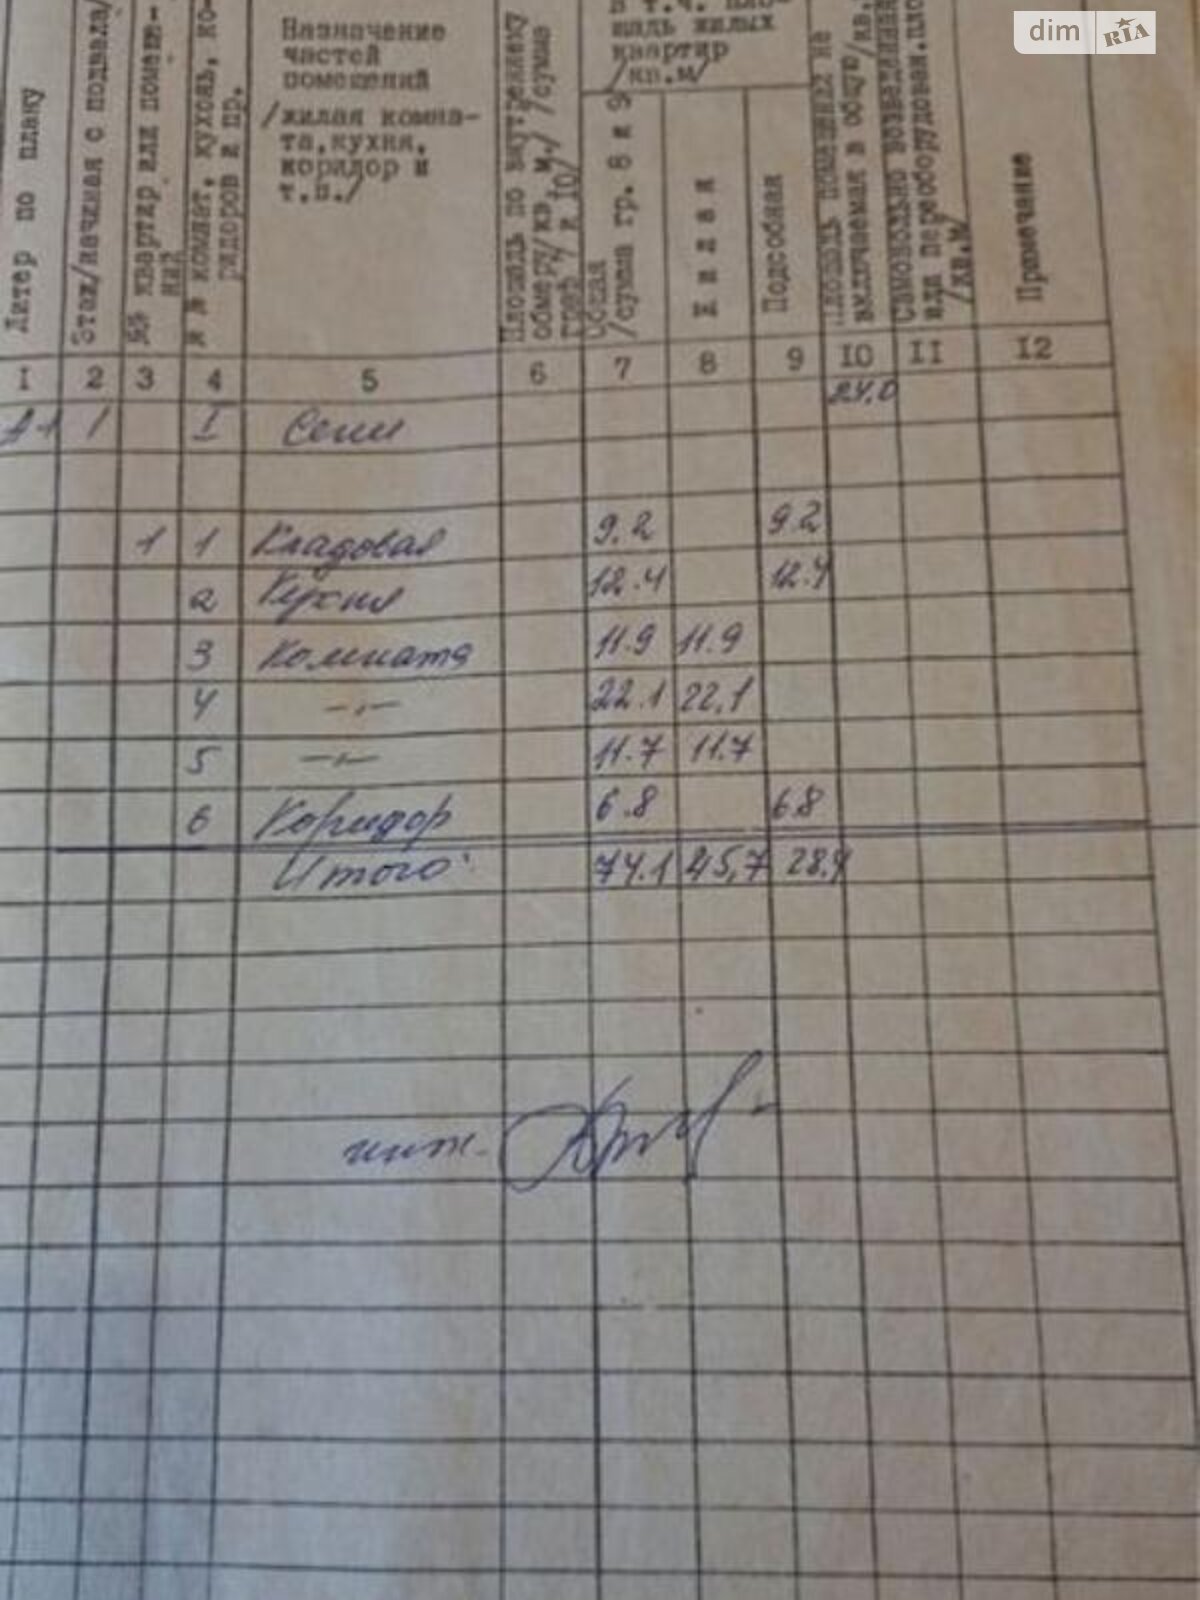 dim RIA
Литер по плану
Этаж/начиная с подвала/
№№ квартир или помеще-
ний
№ № комнат, кухонь, ко-
ридоров и пр.
Назначение
частей
помещений
/жилая комна-
та, кухня,
корядор и
т.п./
Площадь по внутреннему
обмеру/кв. м./ /сумма
граф 7 и 10/
в т.ч. пло-
щадь жилых
квартир
/кв.м/
Общая
/сумма гр. 8 и 9
Жилая
Подсобная
Площадь помещений не
включаемая в общую/кв.
Самовольно возведенная
или переоборудован.пло
/кв.м/
Примечание
I 2 3 4 5 6 7 8 9 10 II 12
А1 1 I Сени 24,0
1 1 Кладовая 9.2 9.2
2 Кухня 12.4 12.4
3 Комната 11.9 11.9
4 -"- 22.1 22,1
5 -"- 11.7 11.7
6 Коридор 6.8 6.8
Итого: 74.1 45,7 28.4
инж.